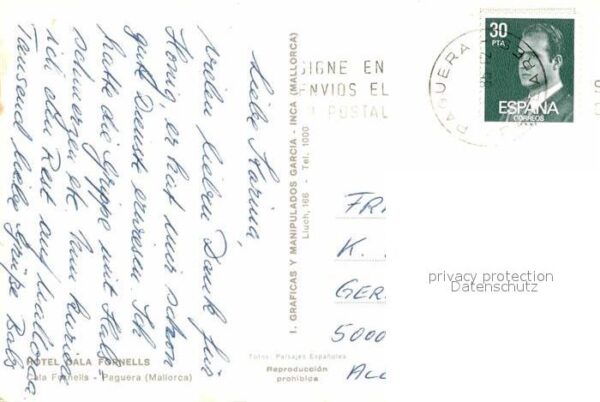 Liebe Karina,
vielen lieben Dank für
Honig, er hat mir schon
gute Dienste erwiesen. Ich
hatte die Grippe mit Hals-
schmerzen etc. Nun kuriere
ich den Rest auf Mallorca
Tausend liebe Grüße
HOTEL CALA FORNELLS
Cala Fornells - Paguera (Mallorca)
I. GRAFICAS Y MANIPULADOS GARCIA - INCA (MALLORCA)
Lluch, 166 - Tel. 1000
Fotos: Paisajes Españolas
Reproducción
prohibida
SIGNE EN
ENVIOS EL
POSTAL
PAGUERA
30
PTA
ESPAÑA
CORREOS
FRA
K.
GER
5000
privacy protection
Datenschutz